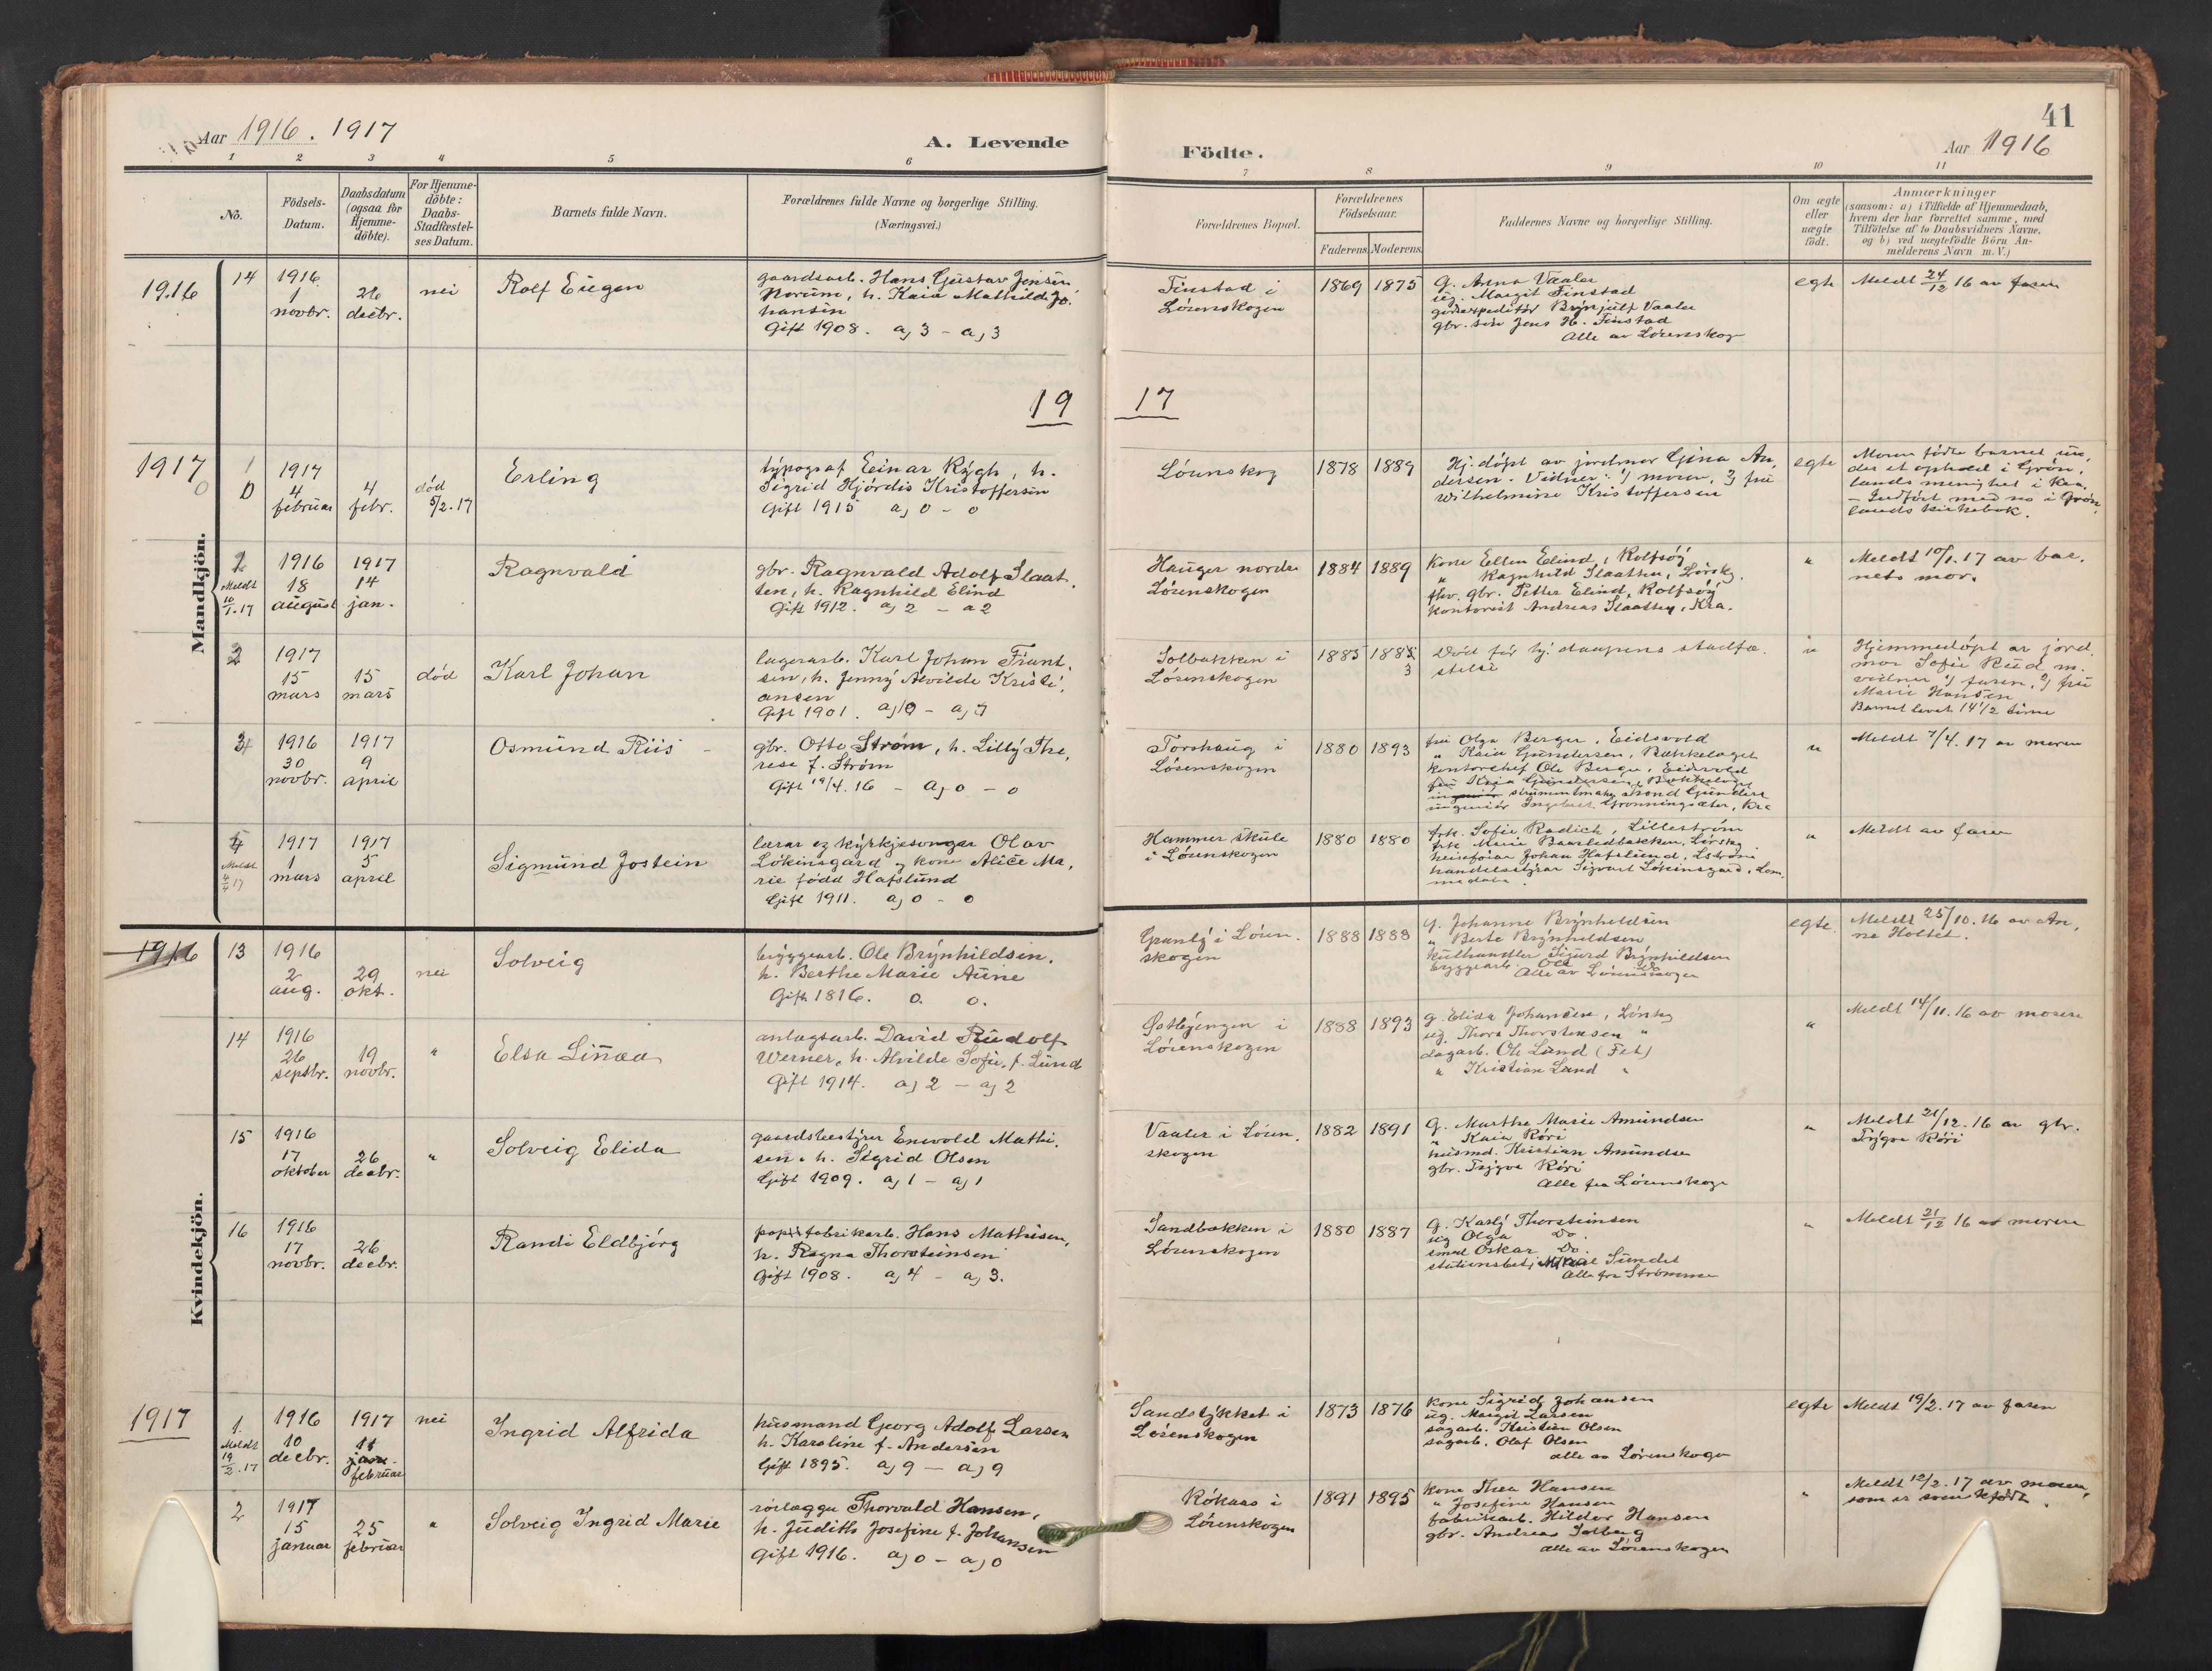 Aar 1916. 1917
A. Levende
Födte.
41
Aar 1916
1 2 3 4 5 6 7 8 9 10 11
No.
Födsels-
Datum.
Daabsdatum
(ogsaa for
Hjemme-
döbte).
For Hjemme-
döbte:
Daabs-
Stadfæstel-
ses Datum.
Barnets fulde Navn.
Forældrenes fulde Navne og borgerlige Stilling.
(Næringsvei.)
Forældrenes Bopæl.
Forældrenes
Födselsaar.
Faderens. Moderens.
Faddernes Navne og borgerlige Stilling.
Om ægte
eller
uægte
födt.
Anmærkninger
(saasom: a) i Tilfælde af Hjemmedaab,
hvem der har forrettet samme, med
Tilföielse af to Daabsvidners Navne,
og b) ved uegtefödte Börn An-
melderens Navn m.V.)
Mandkjön.
1916
14
1916
1
novbr.
26
decbr.
nei
Rolf Eugen
gaardsarb. Hans Gustav Jensen
Norum, h. Kaia Mathilde Jo-
hansen
Gift 1908. a) 3 - a) 3
Finstad i
Lørenskogen
1869 1875
G. Anna Vaaler
ug. Margit Finstad
godsexpeditør Brynjulf Vaaler
gbr. søn Jens H. Finstad
Alle av Lørenskog
egte
Meldt 24/12 16 av faren
19 17
1917
0
1
D
1917
4
februar
4
febr.
død
5/2.17
Erling
typograf Einar Rygh, h.
Sigrid Hjørdis Kristoffersen
Gift 1915 a) 0 - 0
Lørenskog
1878 1889
Hj. døpt av jordmor Gina An-
dersen. Vidner: 1) moren, 2) fru
Wilhelmine Kristoffersen
egte
Moren fødte barnet un-
der et ophold i Grøn-
lands menighet i Kra.
- Indført med no i Grøn-
lands kirkebok.
1
Meldt
10/1.17
1916
18
august
1917
14
jan.
Ragnvald
gbr. Ragnvald Adolf Slaat-
ten, h. Ragnhild Elind
Gift 1912. a) 2 - a 2
Hauger nordre
Lørenskogen
1884 1889
Kone Ellen Elind, Rolfsøy
" Ragnhild Slaatten, Lørskg.
fhv. gbr. Petter Elind, Rolfsøy
Kontorist Andreas Slaatten, Kra.
"
Meldt 10/1.17 av bar-
nets mor.
2
1917
15
mars
15
mars
død
Karl Johan
lagerarb. Karl Johan Frant-
sen, h. Jenny Alvilde Kristi-
ansen
Gift 1901. a) 10 - a) 7
Solbakken i
Lørenskogen
1885 1885
3
Død før hj. daapens stadfæ-
stelse
"
Hjemmedøpt av jord-
mor Sofie Rud m.
vidner 1) faren, 2) fru
Marie Hansen
Barnet levet 14 1/2 time
3
1916
30
novbr.
1917
9
april
Osmund Riis
gbr. Otto Strøm, h. Lilly The-
rese f. Strøm
Gift 19/4.16 - a) 0 - 0
Torshaug i
Lørenskogen
1880 1893
fru Olga Berger, Eidsvold
" Kaia Gundersen, Bækkelaget
Kontorchef Ole Berger, Eidsvold
ingeniør Ingebret Grønningsæter, Kra
"
Meldt 7/4.17 av moren
4
Meldt
4/4 17
1917
1
mars
1917
5
april
Sigmund Jostein
lærar og kyrkjesongar Olav
Løkinsgard og kone Alice Ma-
rie fødd Hafslund
Gift 1911. a) 0 - 0
Hammer skule
i Lørenskogen
1880 1880
frk. Sofie Radich, Lillestrøm
frk. Marie Baarlidbakken, Lørskg.
heisefører Johan Hafslund, Lstrøm
handelsstyrar Sigvart Løkinsgard, Lom-
medalen.
"
Meldt av faren
Kvindekjön.
1916
13
1916
2
aug.
29
okt.
nei
Solveig
byggearb. Ole Brynhildsen,
h. Berthe Marie Aune
Gift 1816. 0. 0.
Granly i Løren-
skogen
1888 1888
G. Johanne Brynhildsen
" Berte Brynhildsen
kulhandler Sigurd Brynhildsen
byggearb. Ole Do
Alle av Lørenskogen
egte
Meldt 25/10.16 av An-
ne Holtet.
14
1916
26
septbr.
19
novbr.
"
Elsa Linæa
anlægsarb. David Rudolf
Werner, h. Alvilde Sofie, f. Lund
Gift 1914. a) 2 - a) 2
Østbyengen i
Lørenskogen
1888 1893
g. Elida Johansen, Lørskg
ug. Thora Thorstensen "
dagarb. Ole Lund (Fet)
" Kristian Lund "
"
Meldt 14/11.16 av moren
15
1916
17
oktober
26
decbr.
"
Solveig Elida
gaardsbestyrer Enevold Mathi-
sen, h. Sigrid Olsen
Gift 1909. a) 1 - a) 1
Vaaler i Løren-
skogen
1882 1891
G. Marthe Marie Amundsen
" Kaia Røri
husmd. Kristian Amundsen
gbr. Trygve Røri
Alle fra Lørenskogen
"
Meldt 21/12.16 av gbr.
Trygve Røri
16
1916
17
novbr.
26
decbr.
Randi Eldbjørg
papirfabrikarb. Hans Mathisen,
h. Ragna Thorsteinsen
Gift 1908. a) 4 - a) 3.
Sandbakken i
Lørenskogen
1880 1887
G. Karly Thorsteinsen
ug Olga Do.
smed Oskar Do.
stationsbetj. Mikal Sundet
Alle fra Strømmen
"
Meldt 21/12 16 av moren
1917
1.
Meldt
19/2.17
1916
10
decbr.
1917
11
jan.
februar
nei
Ingrid Alfrida
husmand Georg Adolf Larsen
h. Karoline f. Andersen
Gift 1895. a) 9 - a) 9
Sandstykket i
Lørenskogen
1873 1876
Kone Sigrid Johansen
ug. Margit Larsen
sagarb. Kristian Olsen
sagarb. Olaf Olsen
alle av Lørenskogen
egte
Meldt 19/2.17 av faren
2
1917
15
januar
25
februar
"
Solveig Ingrid Marie
rørlægger Thorvald Hansen,
h. Judith Josefine f. Johansen
Gift 1916. a) 0 - a) 0
Røkaas i
Lørenskogen
1891 1895
Kone Thea Hansen
" Josefine Hansen
fabrikarb. Hildor Hansen
gbr. Andreas Solberg
alle av Lørenskogen
"
Meldt 12/2.17 av moren,
som er svenskfødt.